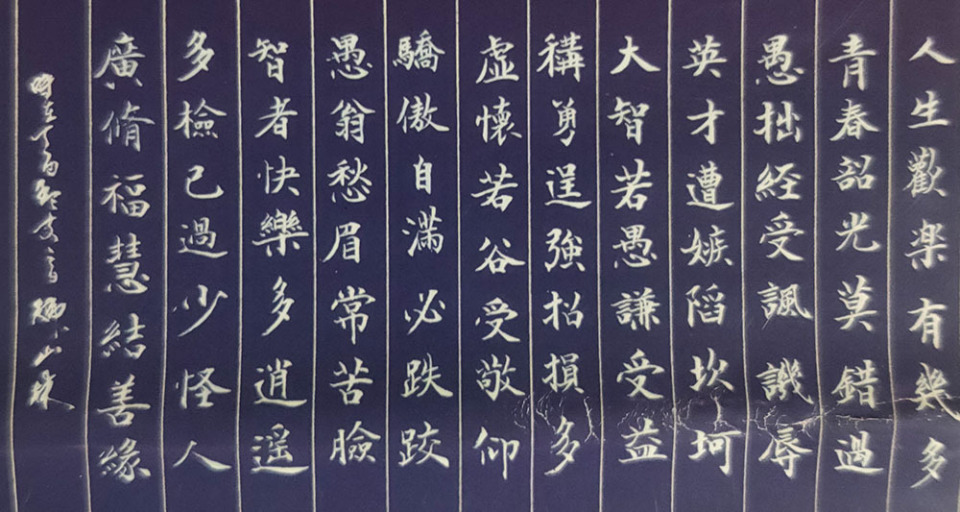 人生歡楽有幾多
青春韶光莫錯過
愚拙経受諷譏辱
英才遭嫉陷坎坷
大智若愚謙受益
稱勇逞強招損多
虛懷若谷受敬仰
驕傲自滿必跌跤
愚翁愁眉常苦臉
智者快樂多逍遥
多檢己過少怪人
廣脩福慧結善緣